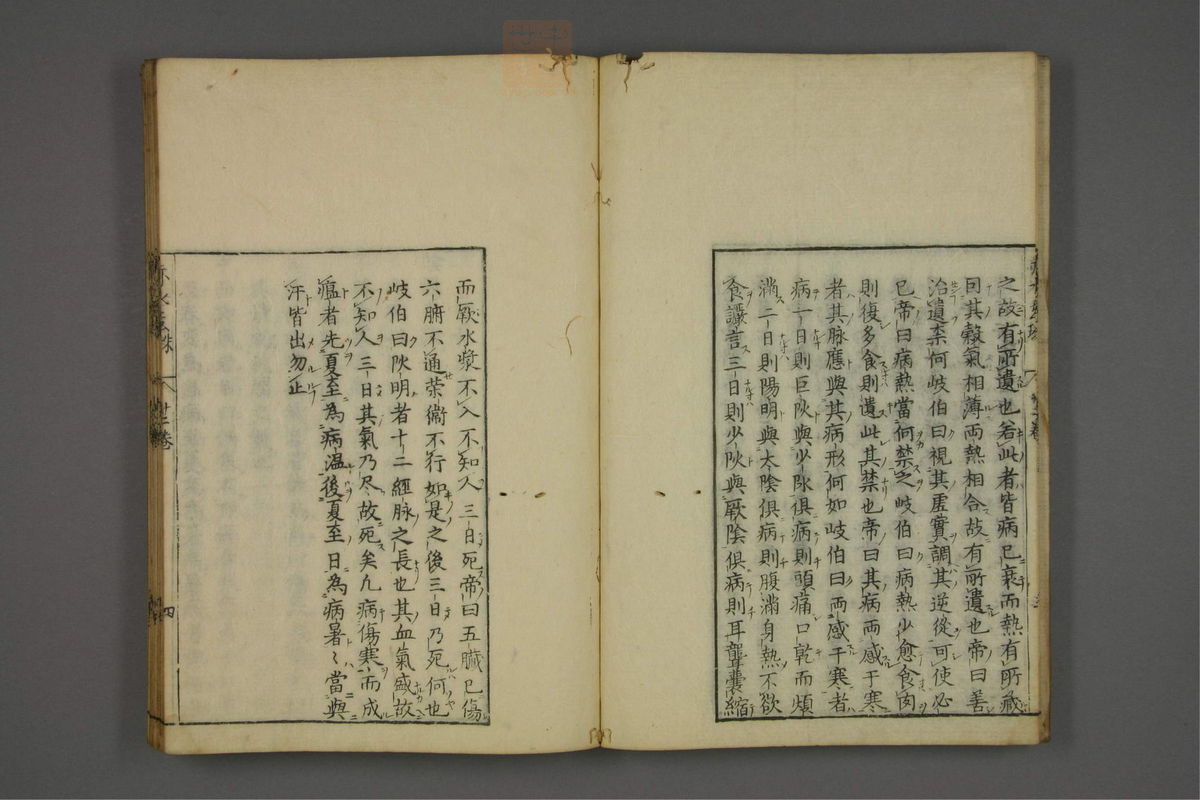 之故有所遺也若此者皆病已衰而熱有所藏
因其穀氣相薄兩熱相合故有所遺也帝曰善
治遺柰何岐伯曰視其虛實調其逆從可使必
已帝曰病熱當何禁之岐伯曰病熱少愈食肉
則復多食則遺此其禁也帝曰其病兩感于寒
者其脉應與其病形何如岐伯曰兩感于寒者
病一日則巨陽與少陰俱病則頭痛口乾而煩
滿二日則陽明與太陰俱病則腹滿身熱不欲
食讝言三日則少陽與厥陰俱病則耳聾囊縮
而厥水漿不入不知人三日死帝曰五臟已傷
六腑不通荣衞不行如是之後三日乃死何也
岐伯曰陽明者十二經脉之長也其血氣盛故
不知人三日其氣乃尽故死矣凡病傷寒而成
瘟者先夏至為病温後夏至日為病暑〻當與
汗皆出勿止
四